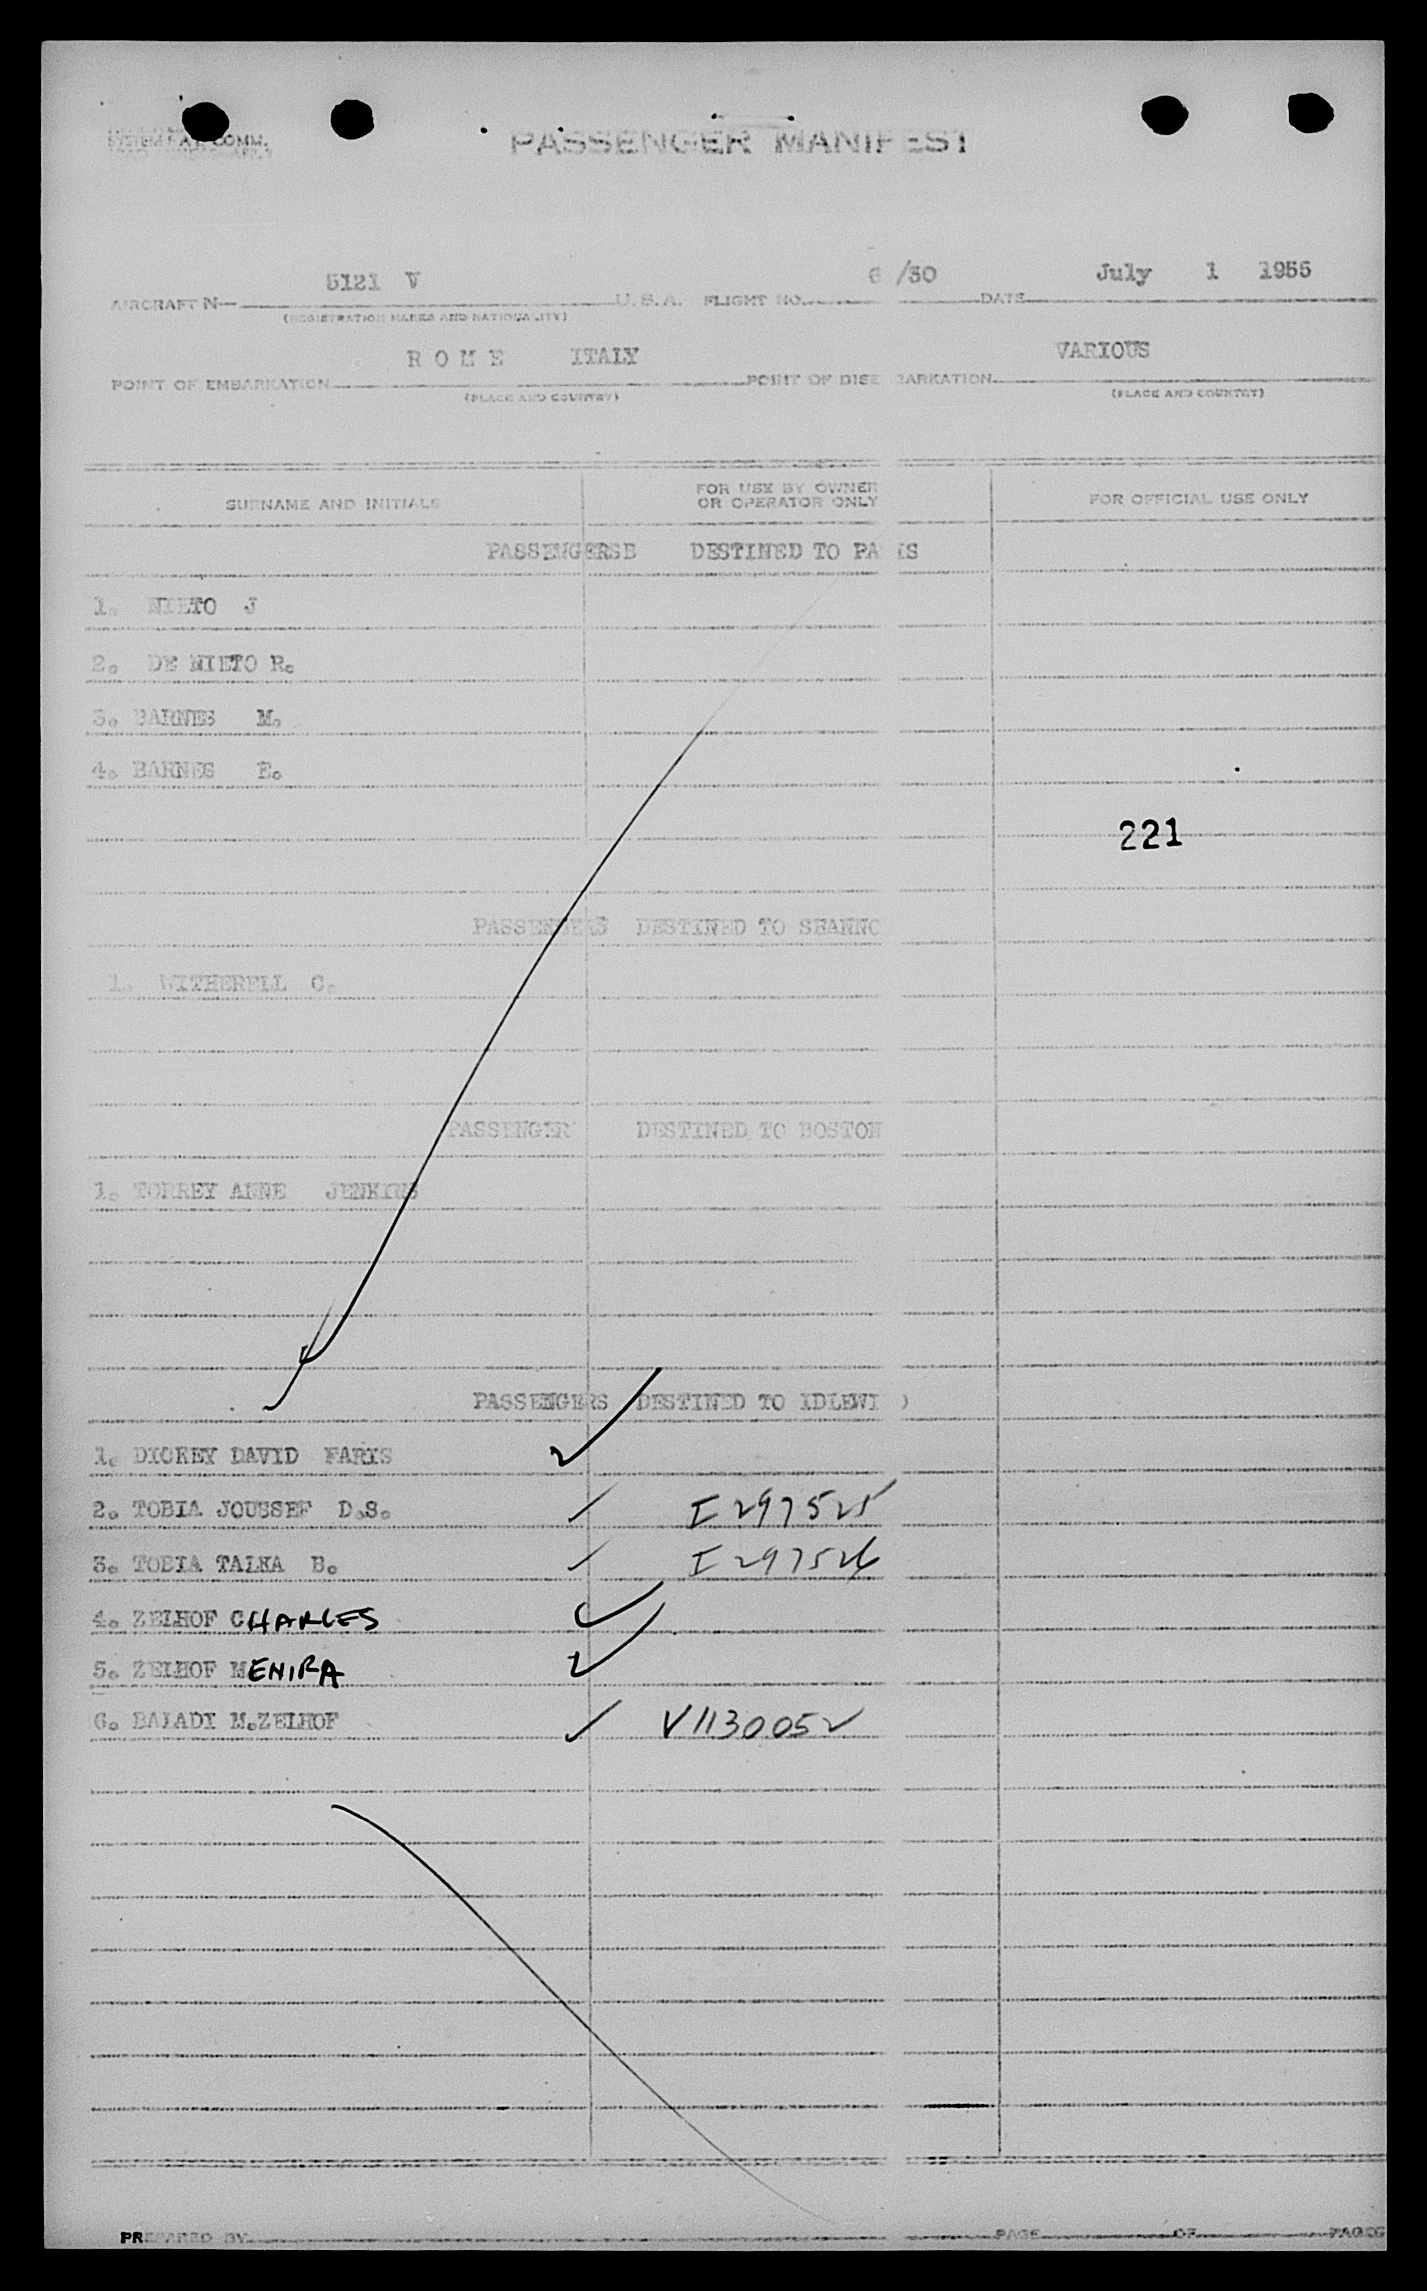 SYSTEM PAX COMM.
PASSENGER MANIFEST
5121 V 6 /30 July 1 1955
AIRCRAFT N— U.S.A. FLIGHT NO. DATE
(REGISTRATION MARKS AND NATIONALITY)
R O M E ITALY VARIOUS
POINT OF EMBARKATION POINT OF DISE BARKATION
(PLACE AND COUNTRY) (PLACE AND COUNTRY)
SURNAME AND INITIALS FOR USE BY OWNER OR OPERATOR ONLY FOR OFFICIAL USE ONLY
PASSENGERSE DESTINED TO PA IS
1. NIETO J
2. DE NIETO R.
3. BARNES M.
4. BARNES E.
221
PASSENGERS DESTINED TO SHANNO
1. WITHERELL C.
PASSENGER DESTINED TO BOSTON
1. TORREY ANNE JENKINS
PASSENGERS DESTINED TO IDLEWI D
1. DICKEY DAVID FARIS
2. TOBIA JOUSSEF D.S. I 297525
3. TOBIA TALKA B. I 297526
4. ZELHOF CHARLES
5. ZELHOF MENIRA
6. BALADI M.ZELHOF V1130052
PREPARED BY PAGE OF PAGES